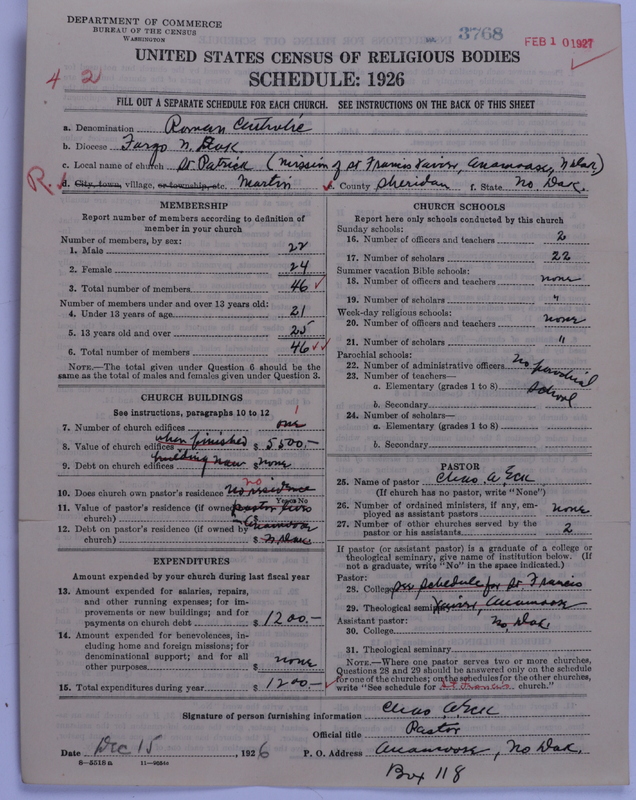 DEPARTMENT OF COMMERCE
BUREAU OF THE CENSUS
WASHINGTON
3768
FEB 10 1927
UNITED STATES CENSUS OF RELIGIOUS BODIES
SCHEDULE: 1926
4 2
FILL OUT A SEPARATE SCHEDULE FOR EACH CHURCH. SEE INSTRUCTIONS ON THE BACK OF THIS SHEET
a. Denomination Roman Catholic
b. Diocese Fargo N. Dak.
c. Local name of church St Patrick (Mission of St Francis Xavier, Anamoose, N Dak.)
R. d. City, town, village, or township, etc. Martin e. County Sheridan f. State No Dak.
MEMBERSHIP
Report number of members according to definition of member in your church
Number of members, by sex:
1. Male 22
2. Female 24
3. Total number of members 46
Number of members under and over 13 years old:
4. Under 13 years of age 21
5. 13 years old and over 25
6. Total number of members 46
NOTE.—The total given under Question 6 should be the same as the total of males and females given under Question 3.
CHURCH BUILDINGS
See instructions, paragraphs 10 to 12
7. Number of church edifices one 1
8. Value of church edifices when finished $ 5500.-
9. Debt on church edifices building now $ none
10. Does church own pastor's residence no residence no
Yes or No
11. Value of pastor's residence (if owned by church) pastor lives
12. Debt on pastor's residence (if owned by church) Anamoose $ N. Dak.
EXPENDITURES
Amount expended by your church during last fiscal year
13. Amount expended for salaries, repairs, and other running expenses; for improvements or new buildings; and for payments on church debt $ 1200.-
14. Amount expended for benevolences, including home and foreign missions; for denominational support; and for all other purposes $ none
15. Total expenditures during year $ 1200-
CHURCH SCHOOLS
Report here only schools conducted by this church
Sunday schools:
16. Number of officers and teachers 2
17. Number of scholars 22
Summer vacation Bible schools:
18. Number of officers and teachers none
19. Number of scholars "
Week-day religious schools:
20. Number of officers and teachers none
21. Number of scholars "
Parochial schools:
22. Number of administrative officers no parochial
23. Number of teachers—
a. Elementary (grades 1 to 8) school
b. Secondary
24. Number of scholars—
a. Elementary (grades 1 to 8)
b. Secondary
PASTOR
25. Name of pastor Chas. A. Eck
(If church has no pastor, write "None")
26. Number of ordained ministers, if any, employed as assistant pastors none
27. Number of other churches served by the pastor or his assistants 2
If pastor (or assistant pastor) is a graduate of a college or theological seminary, give name of institution below. (If not a graduate, write "No" in the space indicated.)
Pastor:
28. College see schedule for St Francis
29. Theological seminary Xavier, Anamoose
Assistant pastor: No Dak.
30. College
31. Theological seminary
NOTE.—Where one pastor serves two or more churches, Questions 28 and 29 should be answered only on the schedule for one of the churches; on the schedules for the other churches, write "See schedule for St Francis church."
Signature of person furnishing information Chas. A. Eck
Official title Pastor
Date Dec 15, 1926 P. O. Address Anamoose, No Dak.
8-5518a 11-9654a
Box 118